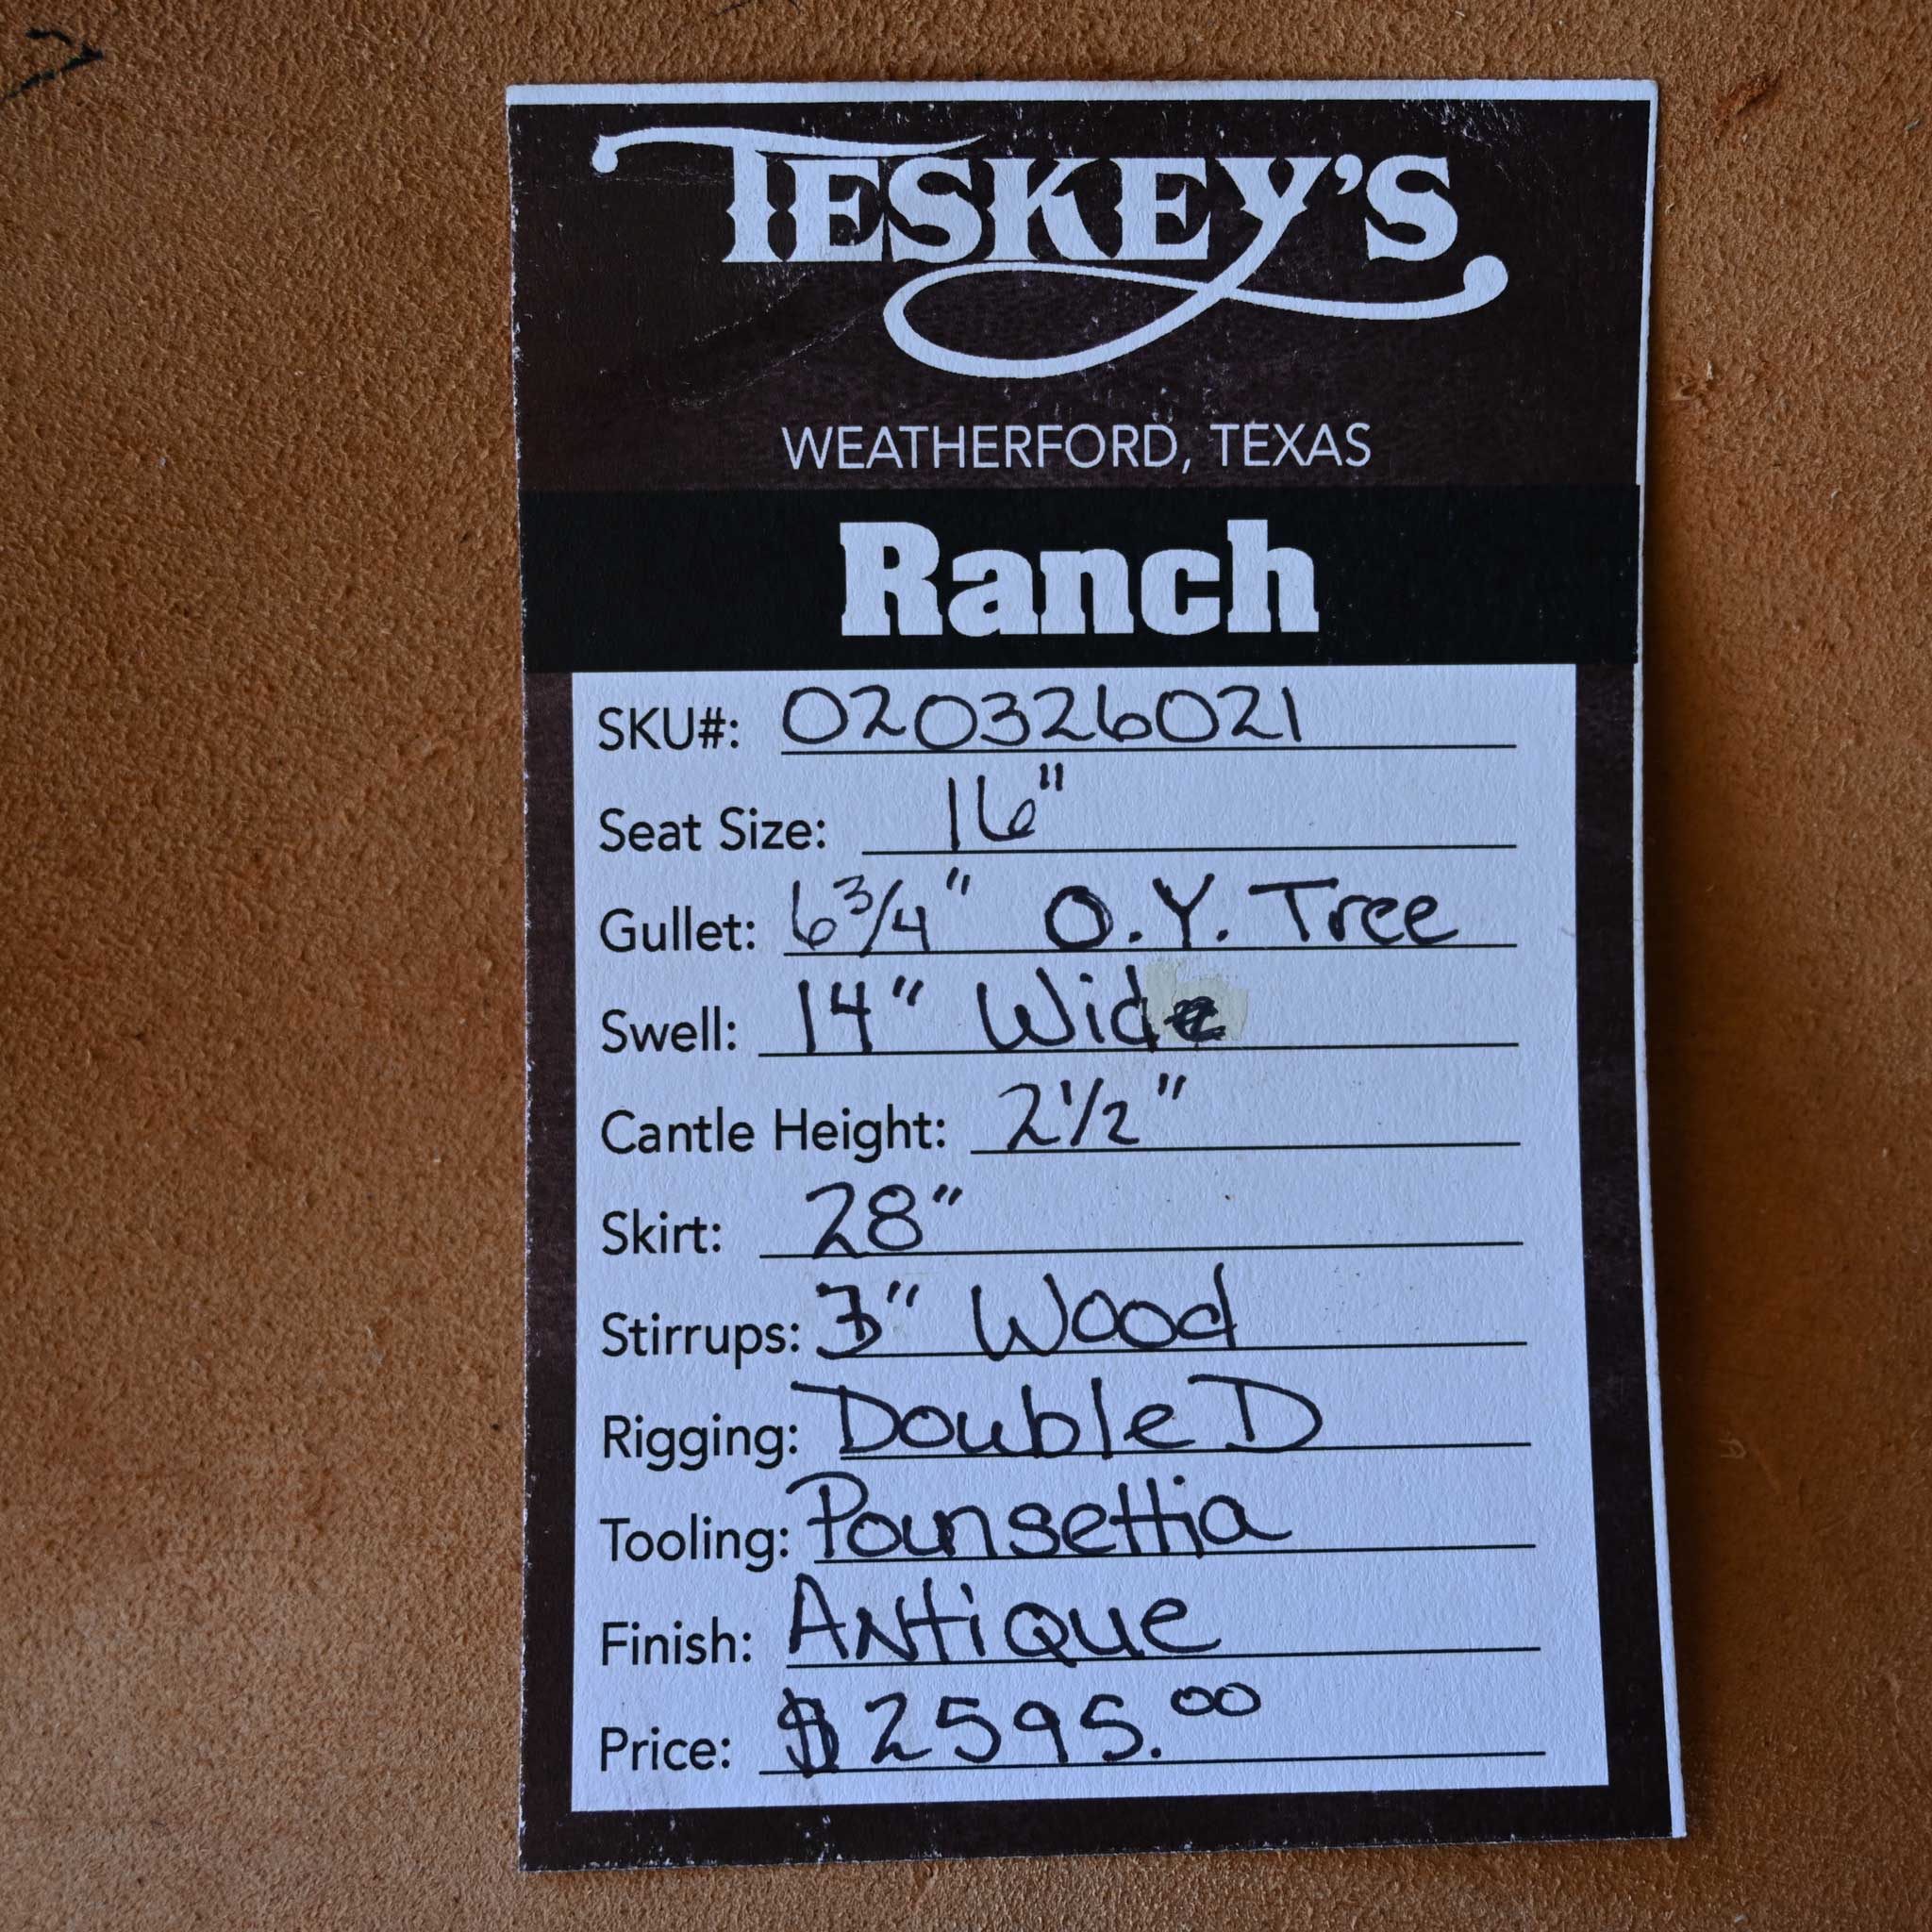 TESKEY'S
WEATHERFORD, TEXAS
Ranch
SKU#: 020326021
Seat Size: 16"
Gullet: 6 3/4" O.Y. Tree
Swell: 14" Wide
Cantle Height: 2 1/2"
Skirt: 28"
Stirrups: 3" Wood
Rigging: Double D
Tooling: Pounsettia
Finish: Antique
Price: $2595.00